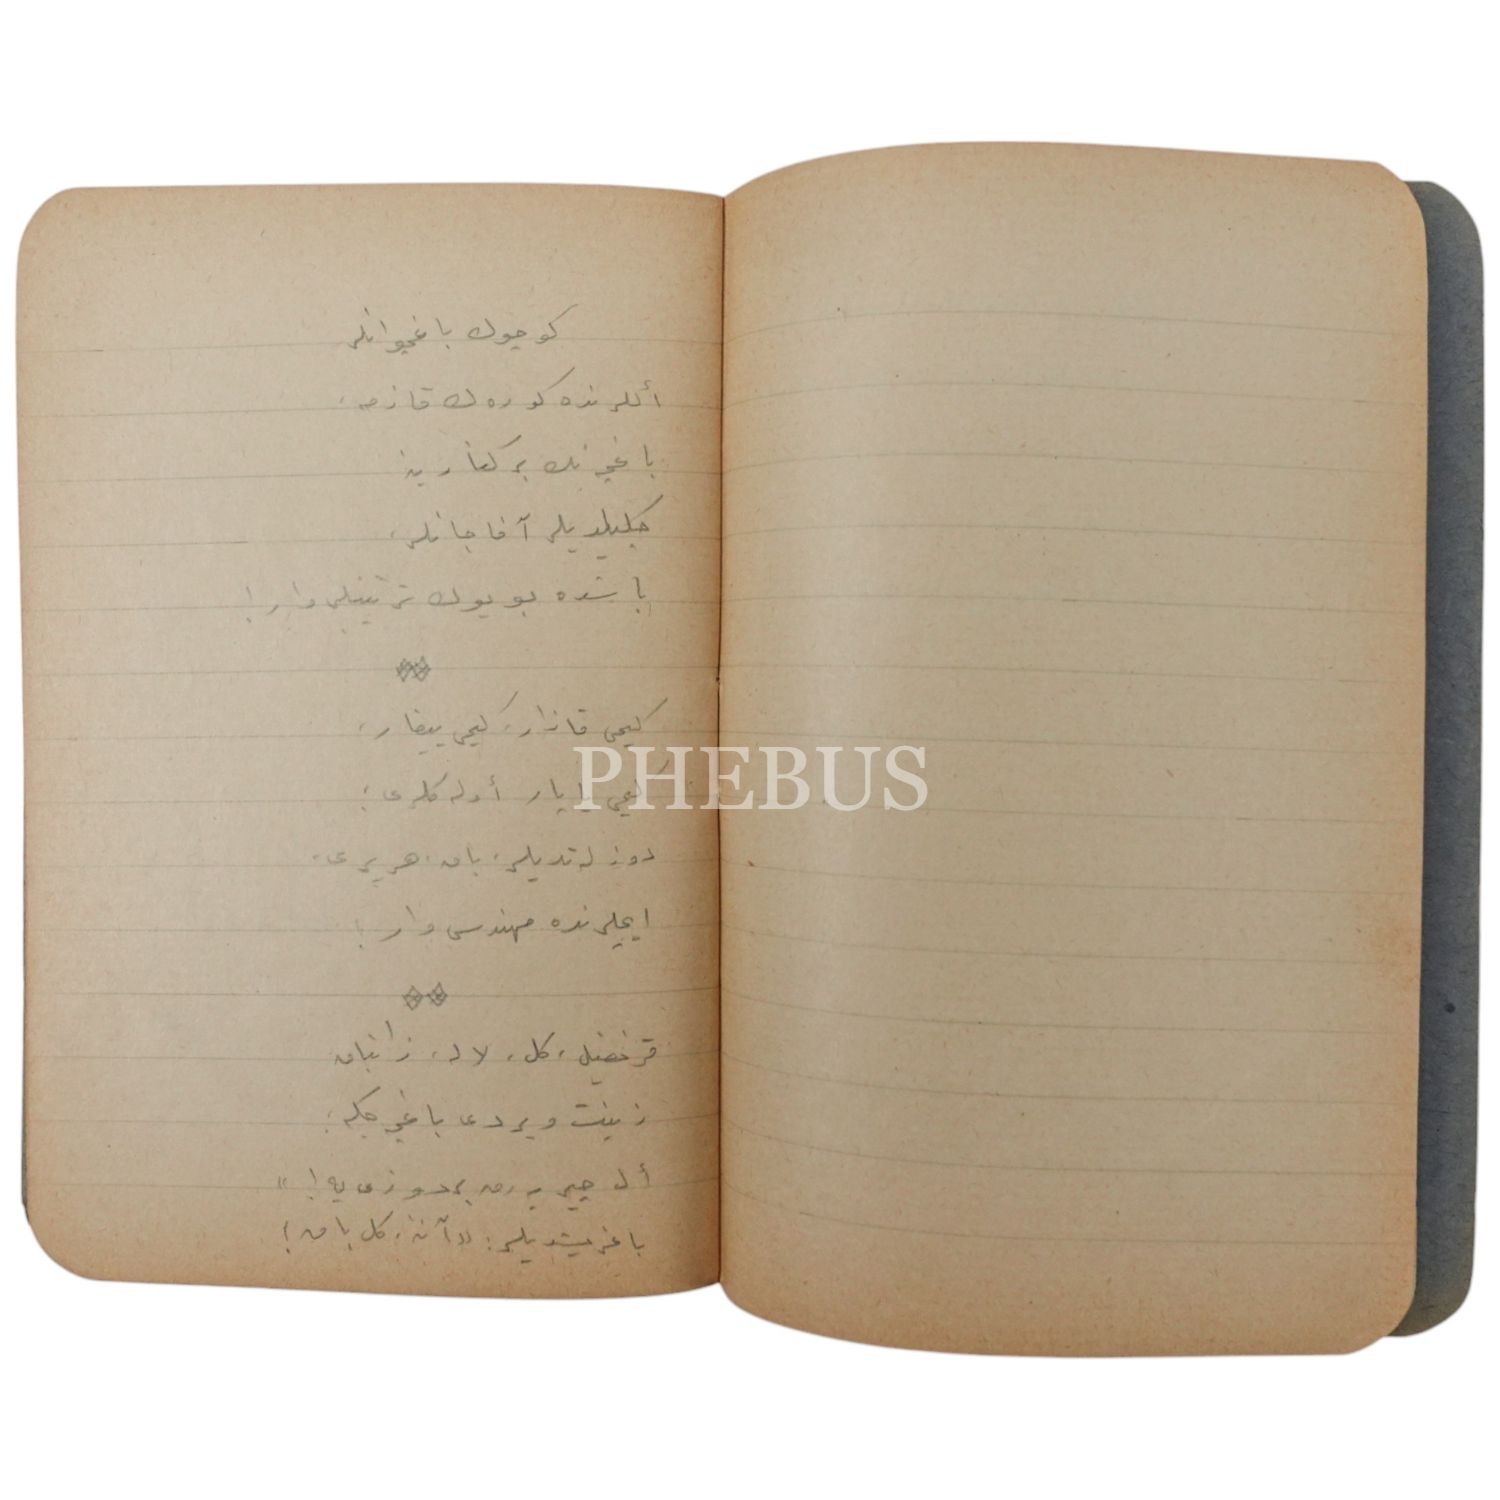 كوچوك باغچوانلر
أللرنده كوره‌ك قازمه،
باغچه‌نك بر كنارينه
چكيلديلر آفاجانلر،
باشده بويوك ترتيبلى وار!
كيمى قازار، كيمى ييغار،
كيمى يايار أوله‌كلرى؛
دوزله‌تديلر، باق، هر يرى،
ايچلرنده مهندسى وار!
قرنفيل، گل، لاله، زانباق
زينت ويردى باغچه‌جكه؛
أل چيرپه‌رق بر دوزى‌يه!»
باغريشديلر: «آننه، گل باق!
PHEBUS